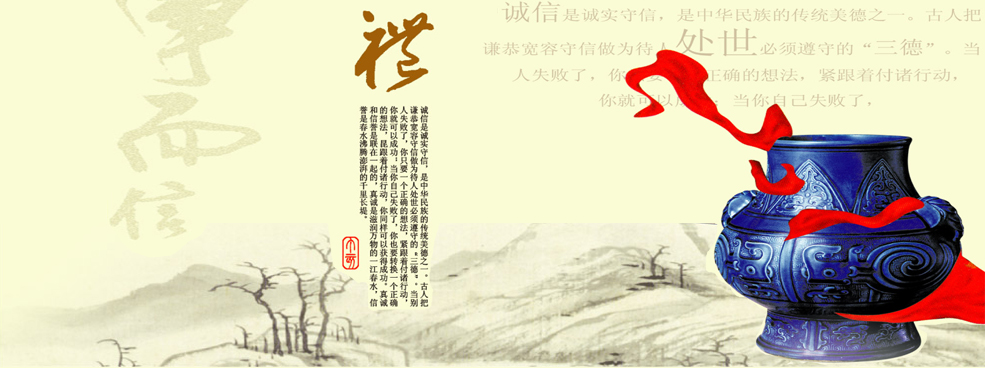 而
信
禮
诚信是诚实守信，是中华民族的传统美德之一。古人把
谦恭宽容守信做为待人处世必须遵守的“三德”。当别
人失败了，你只要一个正确的想法，紧跟着付诸行动，
你就可以成功；当你自己失败了，你也要转换一个正确
的想法，昆跟着付诸行动，你同样可以获得成功。真诚
和信誉是联在一起的，真诚是滋润万物的一江春水，信
誉是春水沸腾澎湃的千里长堤。
诚信是诚实守信，是中华民族的传统美德之一。古人把
谦恭宽容守信做为待人处世必须遵守的“三德”。当
人失败了，你 正确的想法，紧跟着付诸行动，
你就可以成功；当你自己失败了，